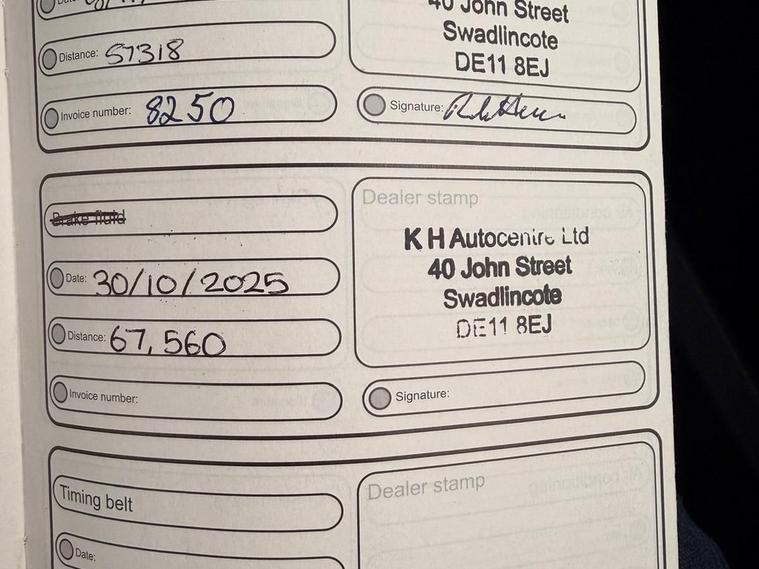 Distance: 57318
Invoice number: 8250
40 John Street
Swadlincote
DE11 8EJ
Signature:
Brake fluid
Date: 30/10/2025
Distance: 67,560
Invoice number:
Dealer stamp
K H Autocentre Ltd
40 John Street
Swadlincote
DE11 8EJ
Signature:
Timing belt
Date:
Dealer stamp